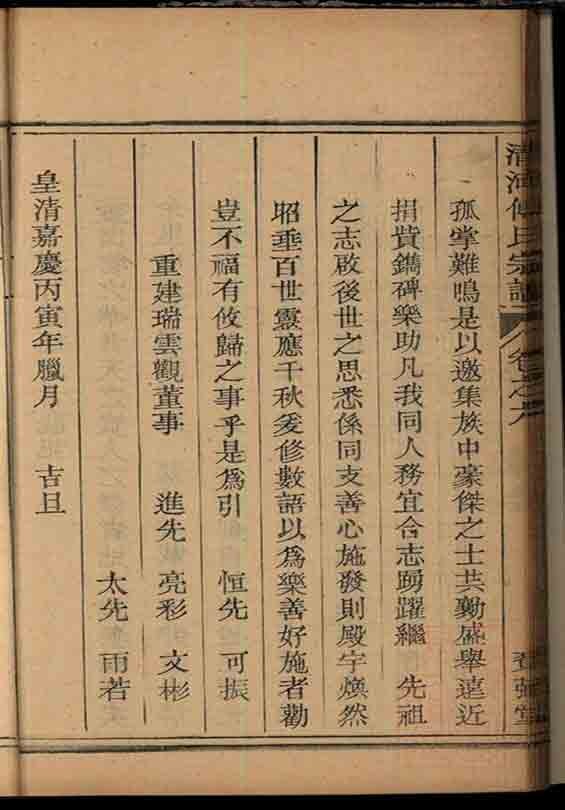 清河傅氏宗譜 卷之六
孤掌難鳴是以邀集族中豪傑之士共勷盛舉遠近
捐貲鐫碑樂助凡我同人務宜合志踴躍繼 先祖
之志啟後世之思悉係同支善心施發則殿宇煥然
昭垂百世靈應千秋爰修數語以為樂善好施者勸
豈不福有攸歸之事乎是為引 恒先 可振
重建瑞雲觀董事 進先 亮彩 文彬
太先 雨若
皇清嘉慶丙寅年臘月 吉旦